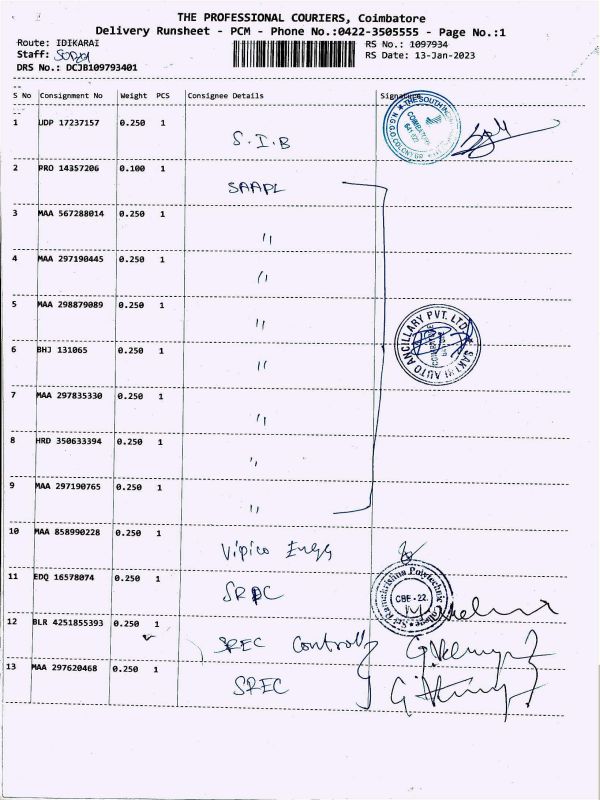 THE PROFESSIONAL COURIERS, Coimbatore
Delivery Runsheet - PCM - Phone No.:0422-3505555 - Page No.:1
Route: IDIKARAI RS No.: 1097934
Staff: RS Date: 13-Jan-2023
DRS No.: DCJB109793401
S No Consignment No Weight PCS Consignee Details Signature
1 UDP 17237157 0.250 1 S.I.B
THE SOUTH INDIAN
N.G.G.O. COLONY BR
2 PRO 14357206 0.100 1 SAAPL
3 MAA 567288014 0.250 1 "
4 MAA 297190445 0.250 1 "
5 MAA 298879089 0.250 1 "
SAKTHI AUTO ANCILLARY PVT. LTD.
6 BHJ 131065 0.250 1 "
7 MAA 297835330 0.250 1 "
8 HRD 350633394 0.250 1 "
9 MAA 297190765 0.250 1 "
10 MAA 858990228 0.250 1 Vipico Engg
11 EDQ 16578074 0.250 1 SRPC
Sri Ramakrishna Polytechnic College
CBE - 22.
12 BLR 4251855393 0.250 1 SREC Controll
13 MAA 297620468 0.250 1 SREC